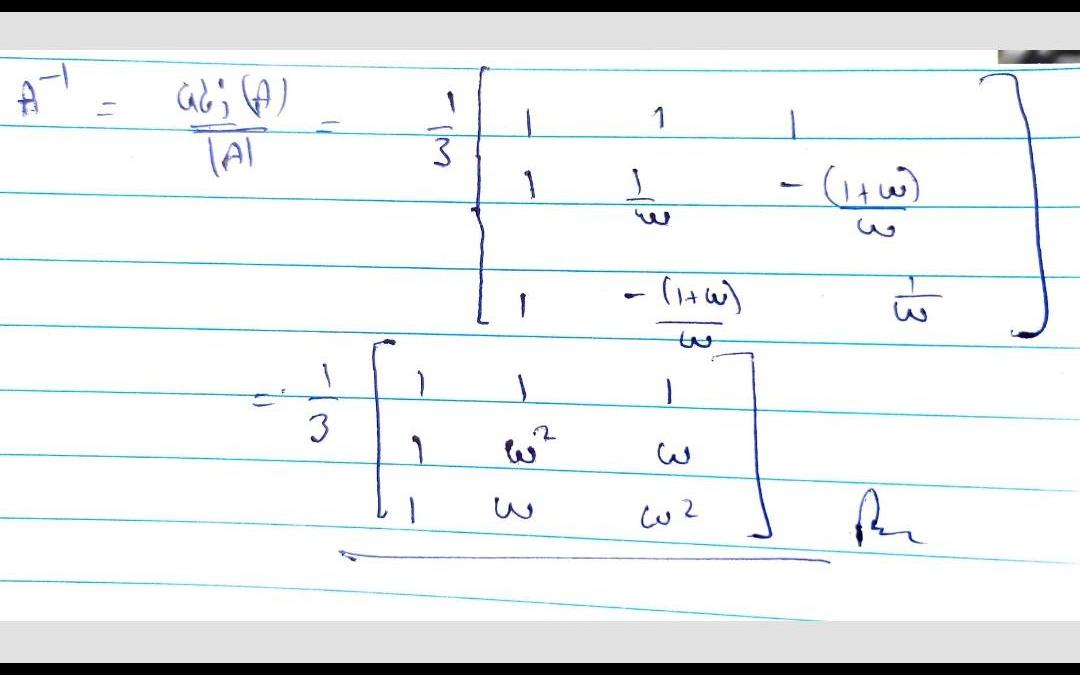 A⁻¹ = adj(A)/|A| = 1/3 [ 1 1 1
1 1/ω -(1+ω)/ω
1 -(1+ω)/ω 1/ω ]
= 1/3 [ 1 1 1
1 ω² ω
1 ω ω² ]